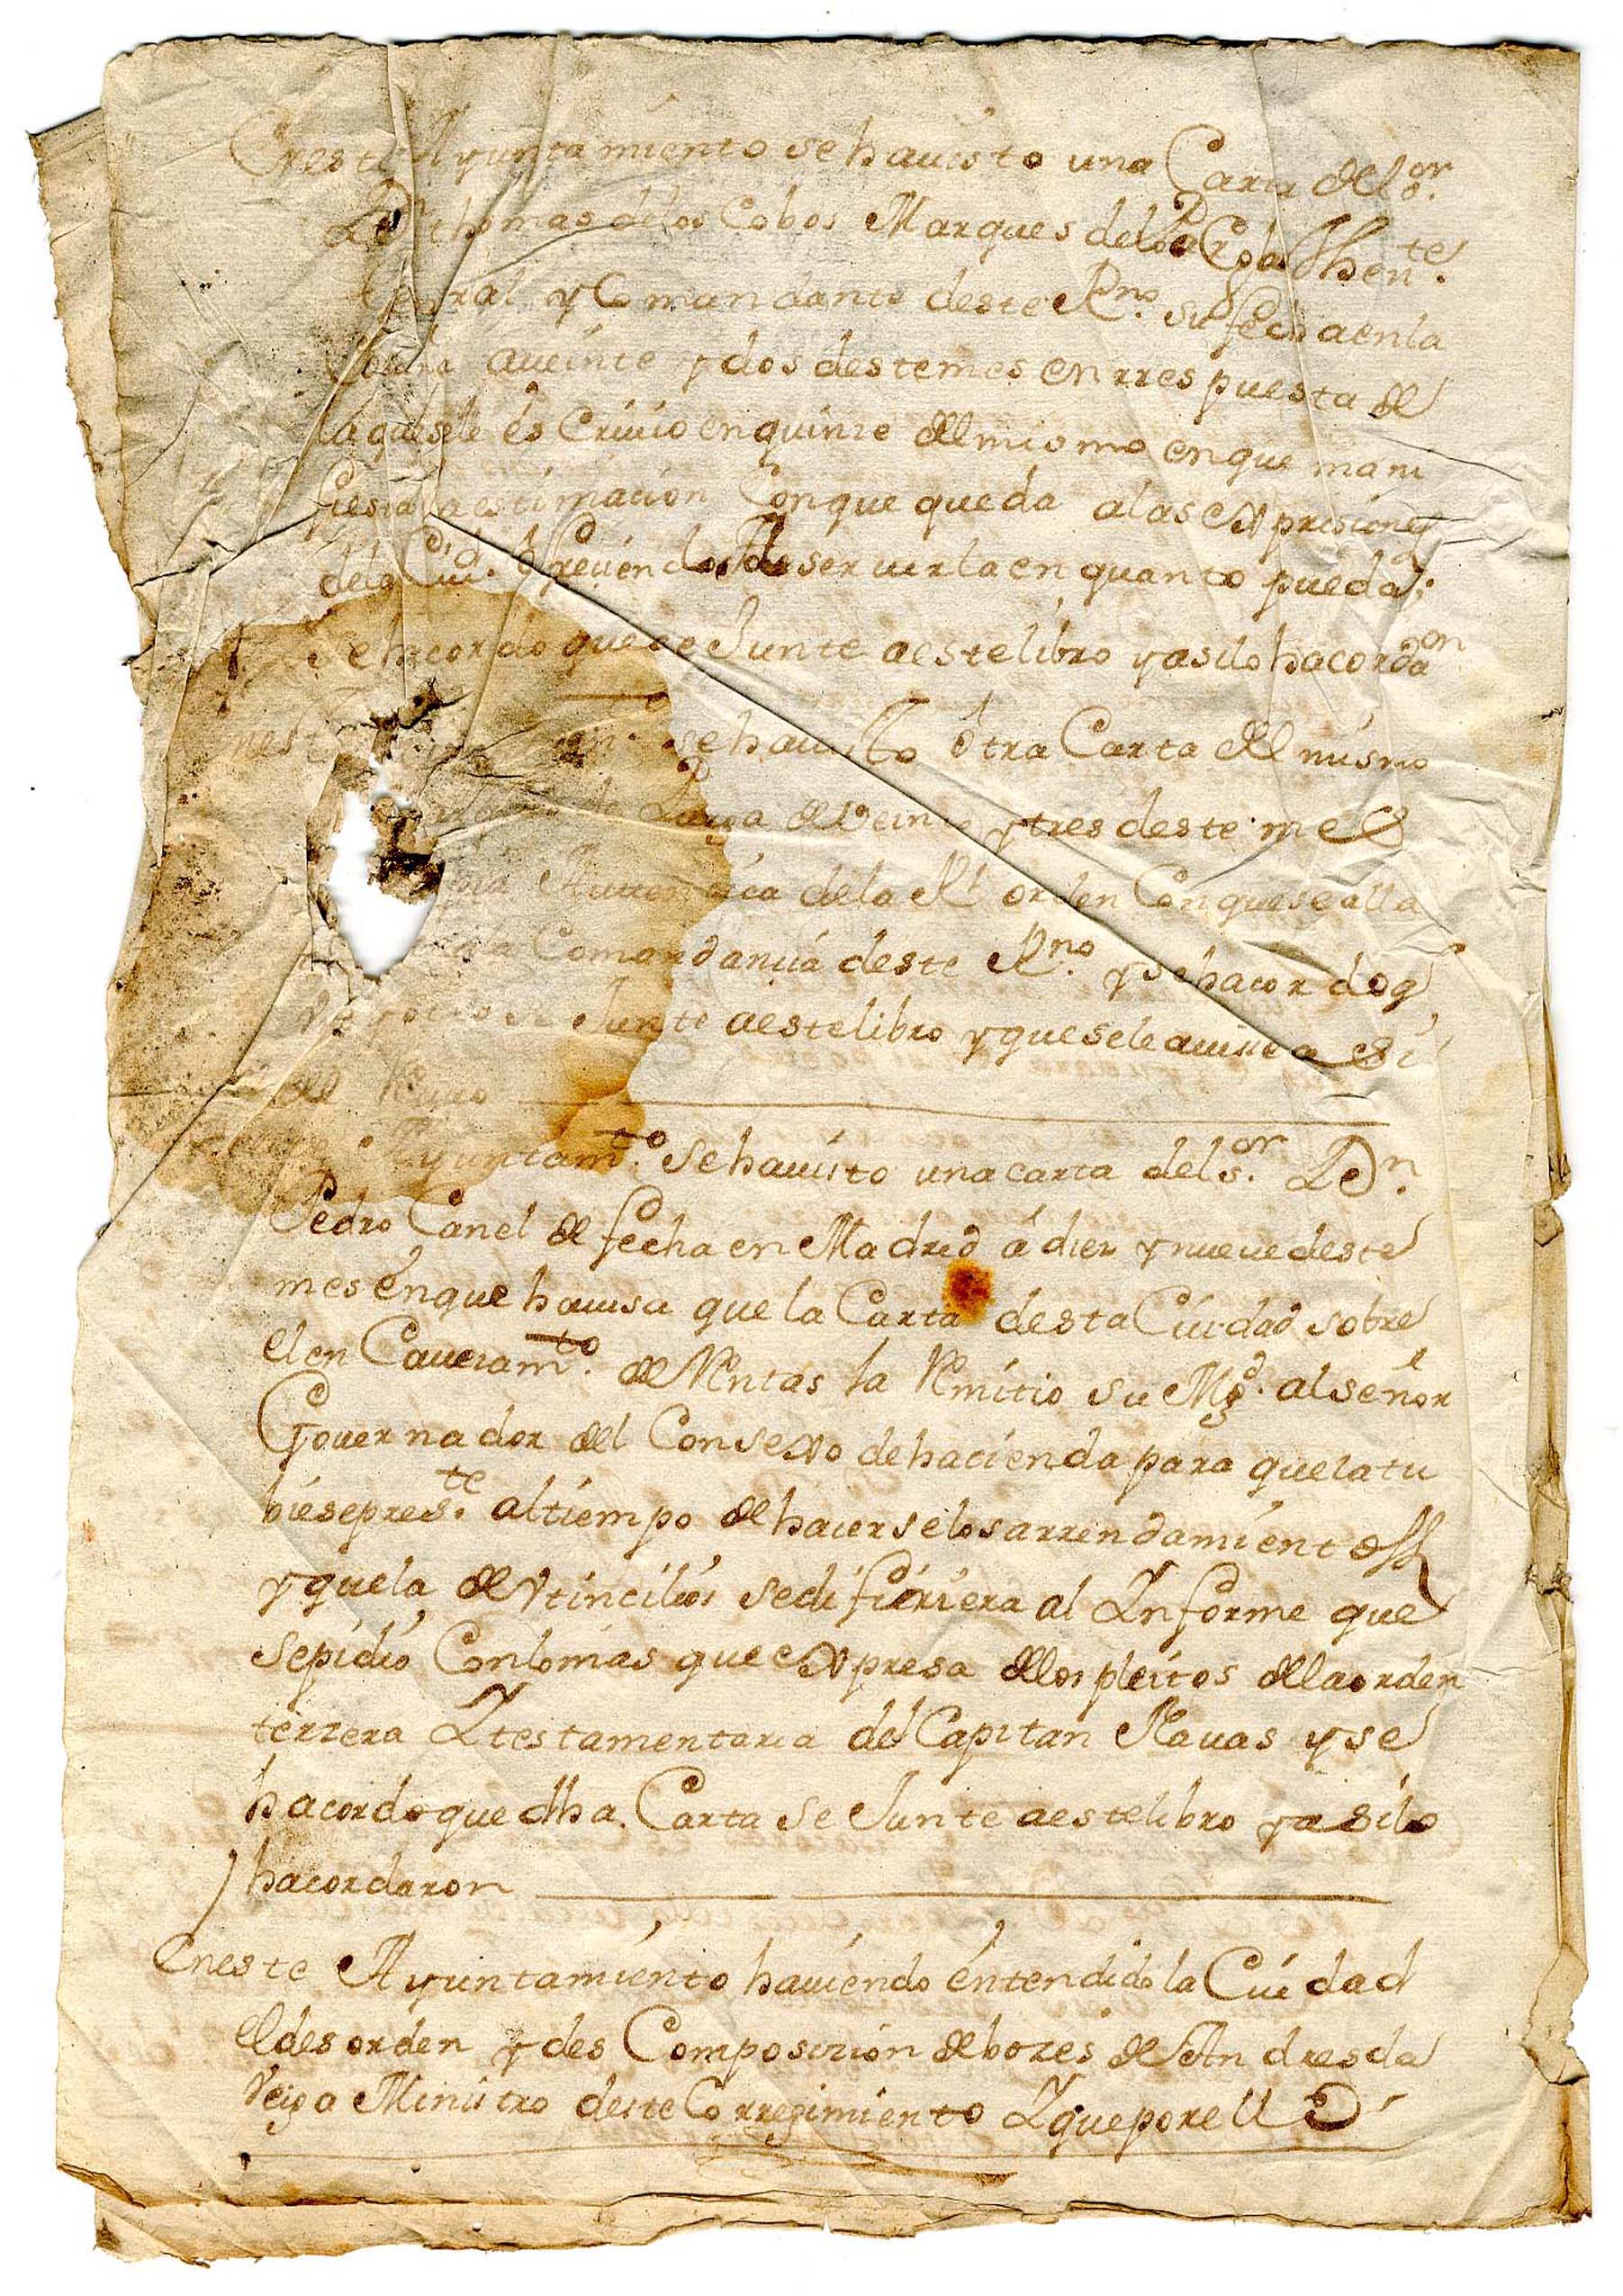 Eneste Ayuntamiento se hauisto una Carta del s.or
Dn thomas delos Cobos Marques de Thente.
Genral y Comandante deste Rno. su fecha enla
Coruña aueinte y dos destemes enrrespuesta de
laquesele escriuio enquinze del mismo enque mani
fiesta laestimacion Conque queda alas expresiones
dela Ciud. ofreciendose seruirla en quanto pueda;
Sehacordo que se Junte aestelibro yasilo hacordaon
se hauisto otra Carta del mismo
de Parga de Veinte ytres deste mes
dela Rl orden Conquesealla
Comandancia deste Rno. ysehacordo q
Junte aestelibro yquesele auise a si
del Reciuo
Ayuntamto. Sehauisto una carta del s.or Dn.
Pedro Canel de fecha en Madrid á diez ynueuedeste
mes enque hauisa que la Carta desta Ciudad sobre
elen Caueramto. de Rentas la Remitio su Mgd. alseñor
Gouernador del Consexo dehacienda para quelatu
biesepreste. altiempo de hacerselosarrendamientoss
yquela de Vtincilios sedifiriera al Informe que
sepidio Conlomas que expresa delos pleitos delaorden
terzera Ytestamentaria del Capitan Nauas yse
hacordo que dha. Carta se Junte aestelibro yasilo
hacordaron
Eneste Ayuntamiento hauiendo entendido la Ciudad
eldesorden y des Composicion debozes de Andresda
Veiga Ministro deste Corregimiento Yquepore